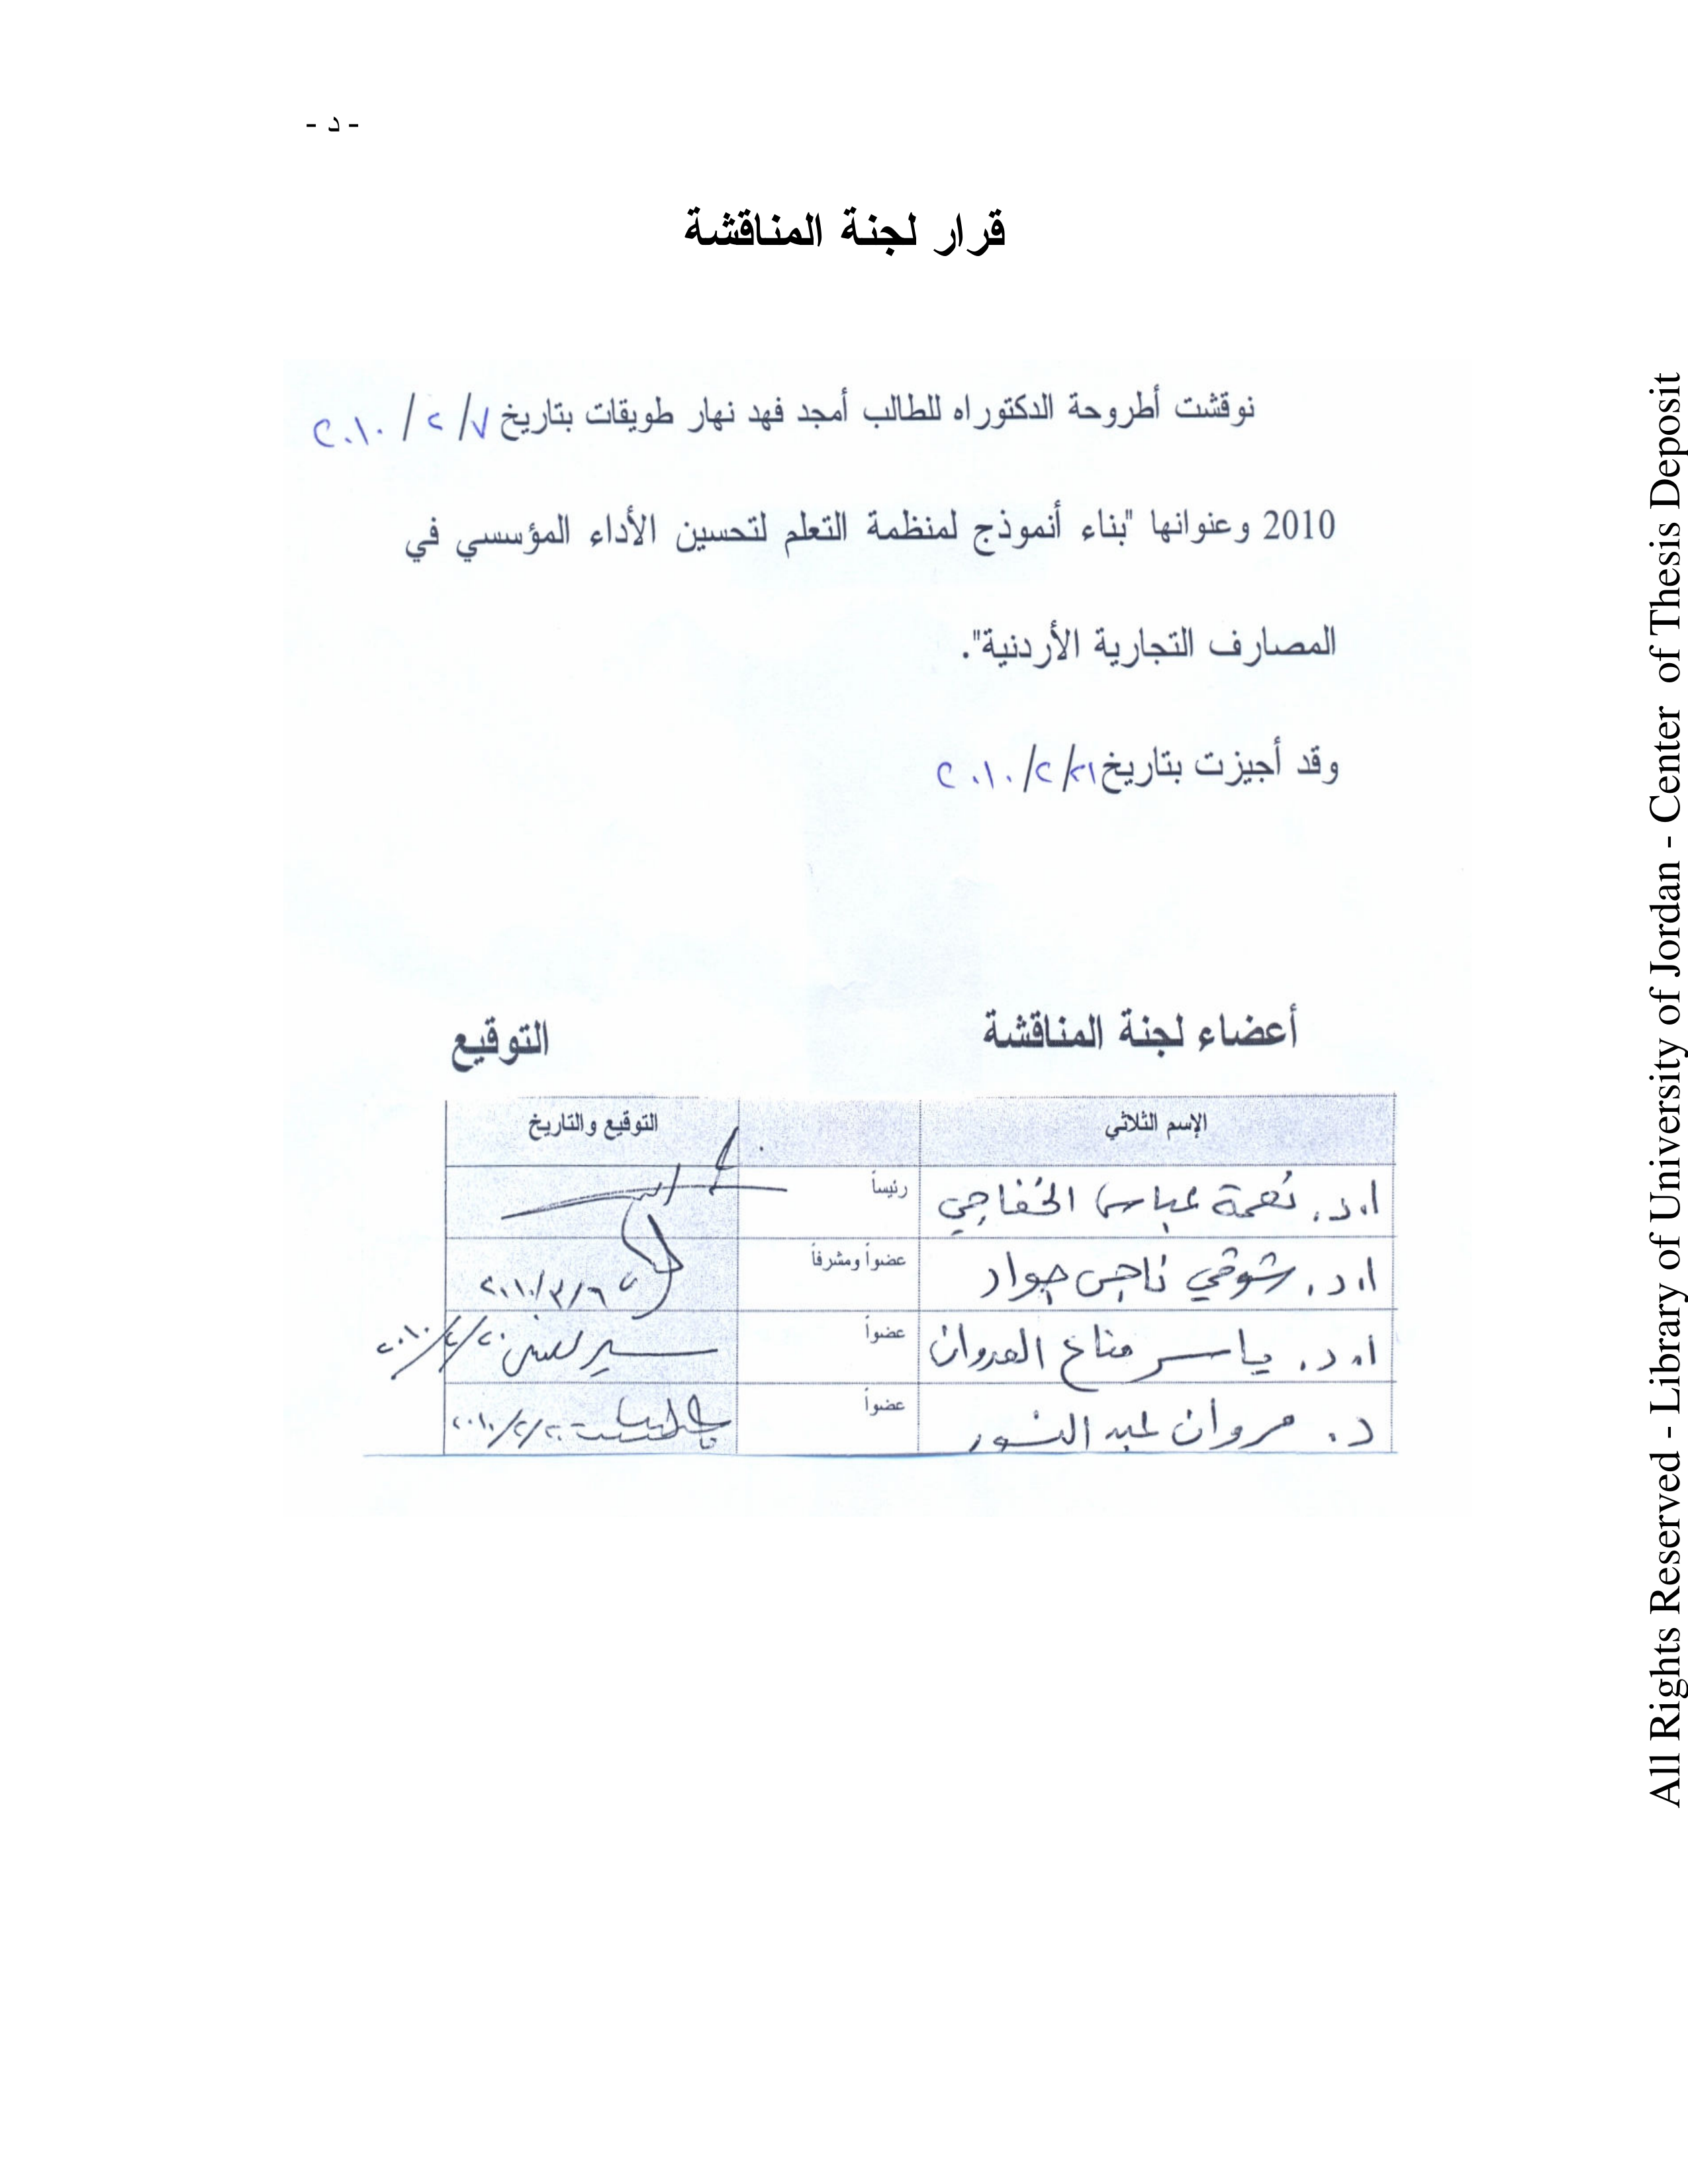 - د -
قرار لجنة المناقشة
نوقشت أطروحة الدكتوراه للطالب أمجد فهد نهار طويقات بتاريخ ٧/ ٢ / ٢٠١٠
2010 وعنوانها "بناء أنموذج لمنظمة التعلم لتحسين الأداء المؤسسي في
المصارف التجارية الأردنية".
وقد أجيزت بتاريخ ٢١/ ٢/ ٢٠١٠
أعضاء لجنة المناقشة التوقيع
الإسم الثلاثي التوقيع والتاريخ
ا.د. نعمة عباس الخفاجي رئيساً
ا.د. شوقي ناجي جواد عضواً ومشرفاً ٢٠١٠/٣/٦
ا.د. ياسر مناع العدوان عضواً
د. مروان عبد النسور عضواً
All Rights Reserved - Library of University of Jordan - Center of Thesis Deposit